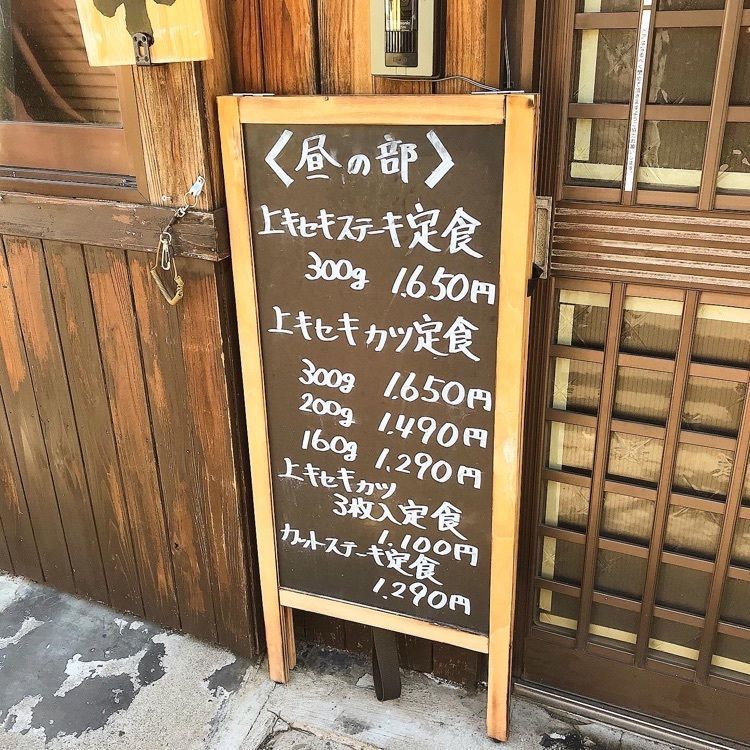 〈昼の部〉
上キセキステーキ定食
300g 1.650円
上キセキカツ定食
300g 1.650円
200g 1.490円
160g 1.290円
上キセキカツ
3枚入定食
1.100円
カットステーキ定食
1.290円